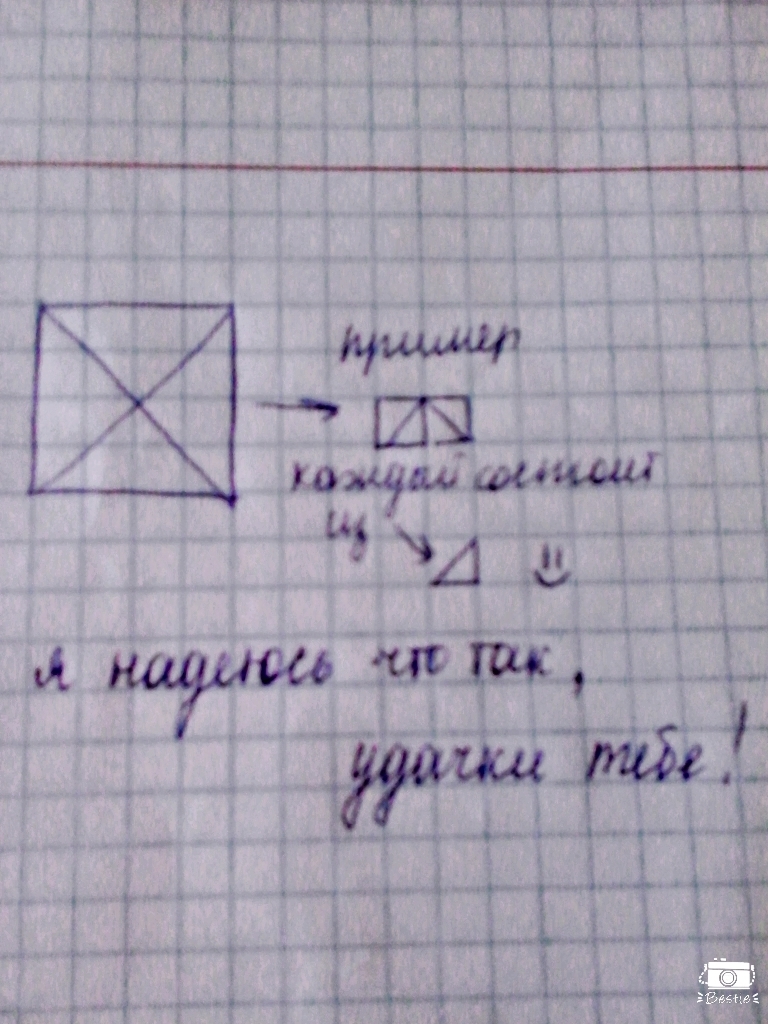 пример
каждый состоит
из
я надеюсь что так,
удачки тебе!
Bestie